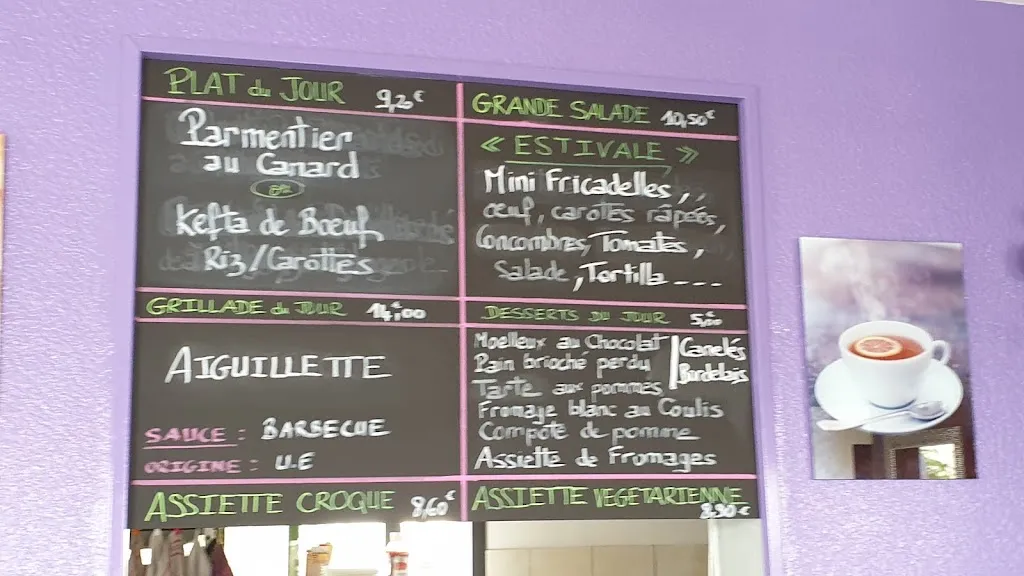 PLAT du JOUR 9,20€
Parmentier
au Canard
ou
Kefta de Boeuf
Riz/Carottes
GRILLADE du JOUR 14€00
AIGUILLETTE
SAUCE : BARBECUE
ORIGINE : U.E
ASSIETTE CROQUE 8,60€
GRANDE SALADE 10,50€
« ESTIVALE »
Mini Fricadelles,,
œuf, carottes rapées,
Concombres, Tomates,
Salade, Tortilla ----
DESSERTS DU JOUR 5,€00
Moelleux au Chocolat
Pain brioché perdu
Tarte aux pommes
Canelés
Bordelais
Fromage blanc au Coulis
Compote de pomme
Assiette de Fromages
ASSIETTE VEGETARIENNE
8,90€